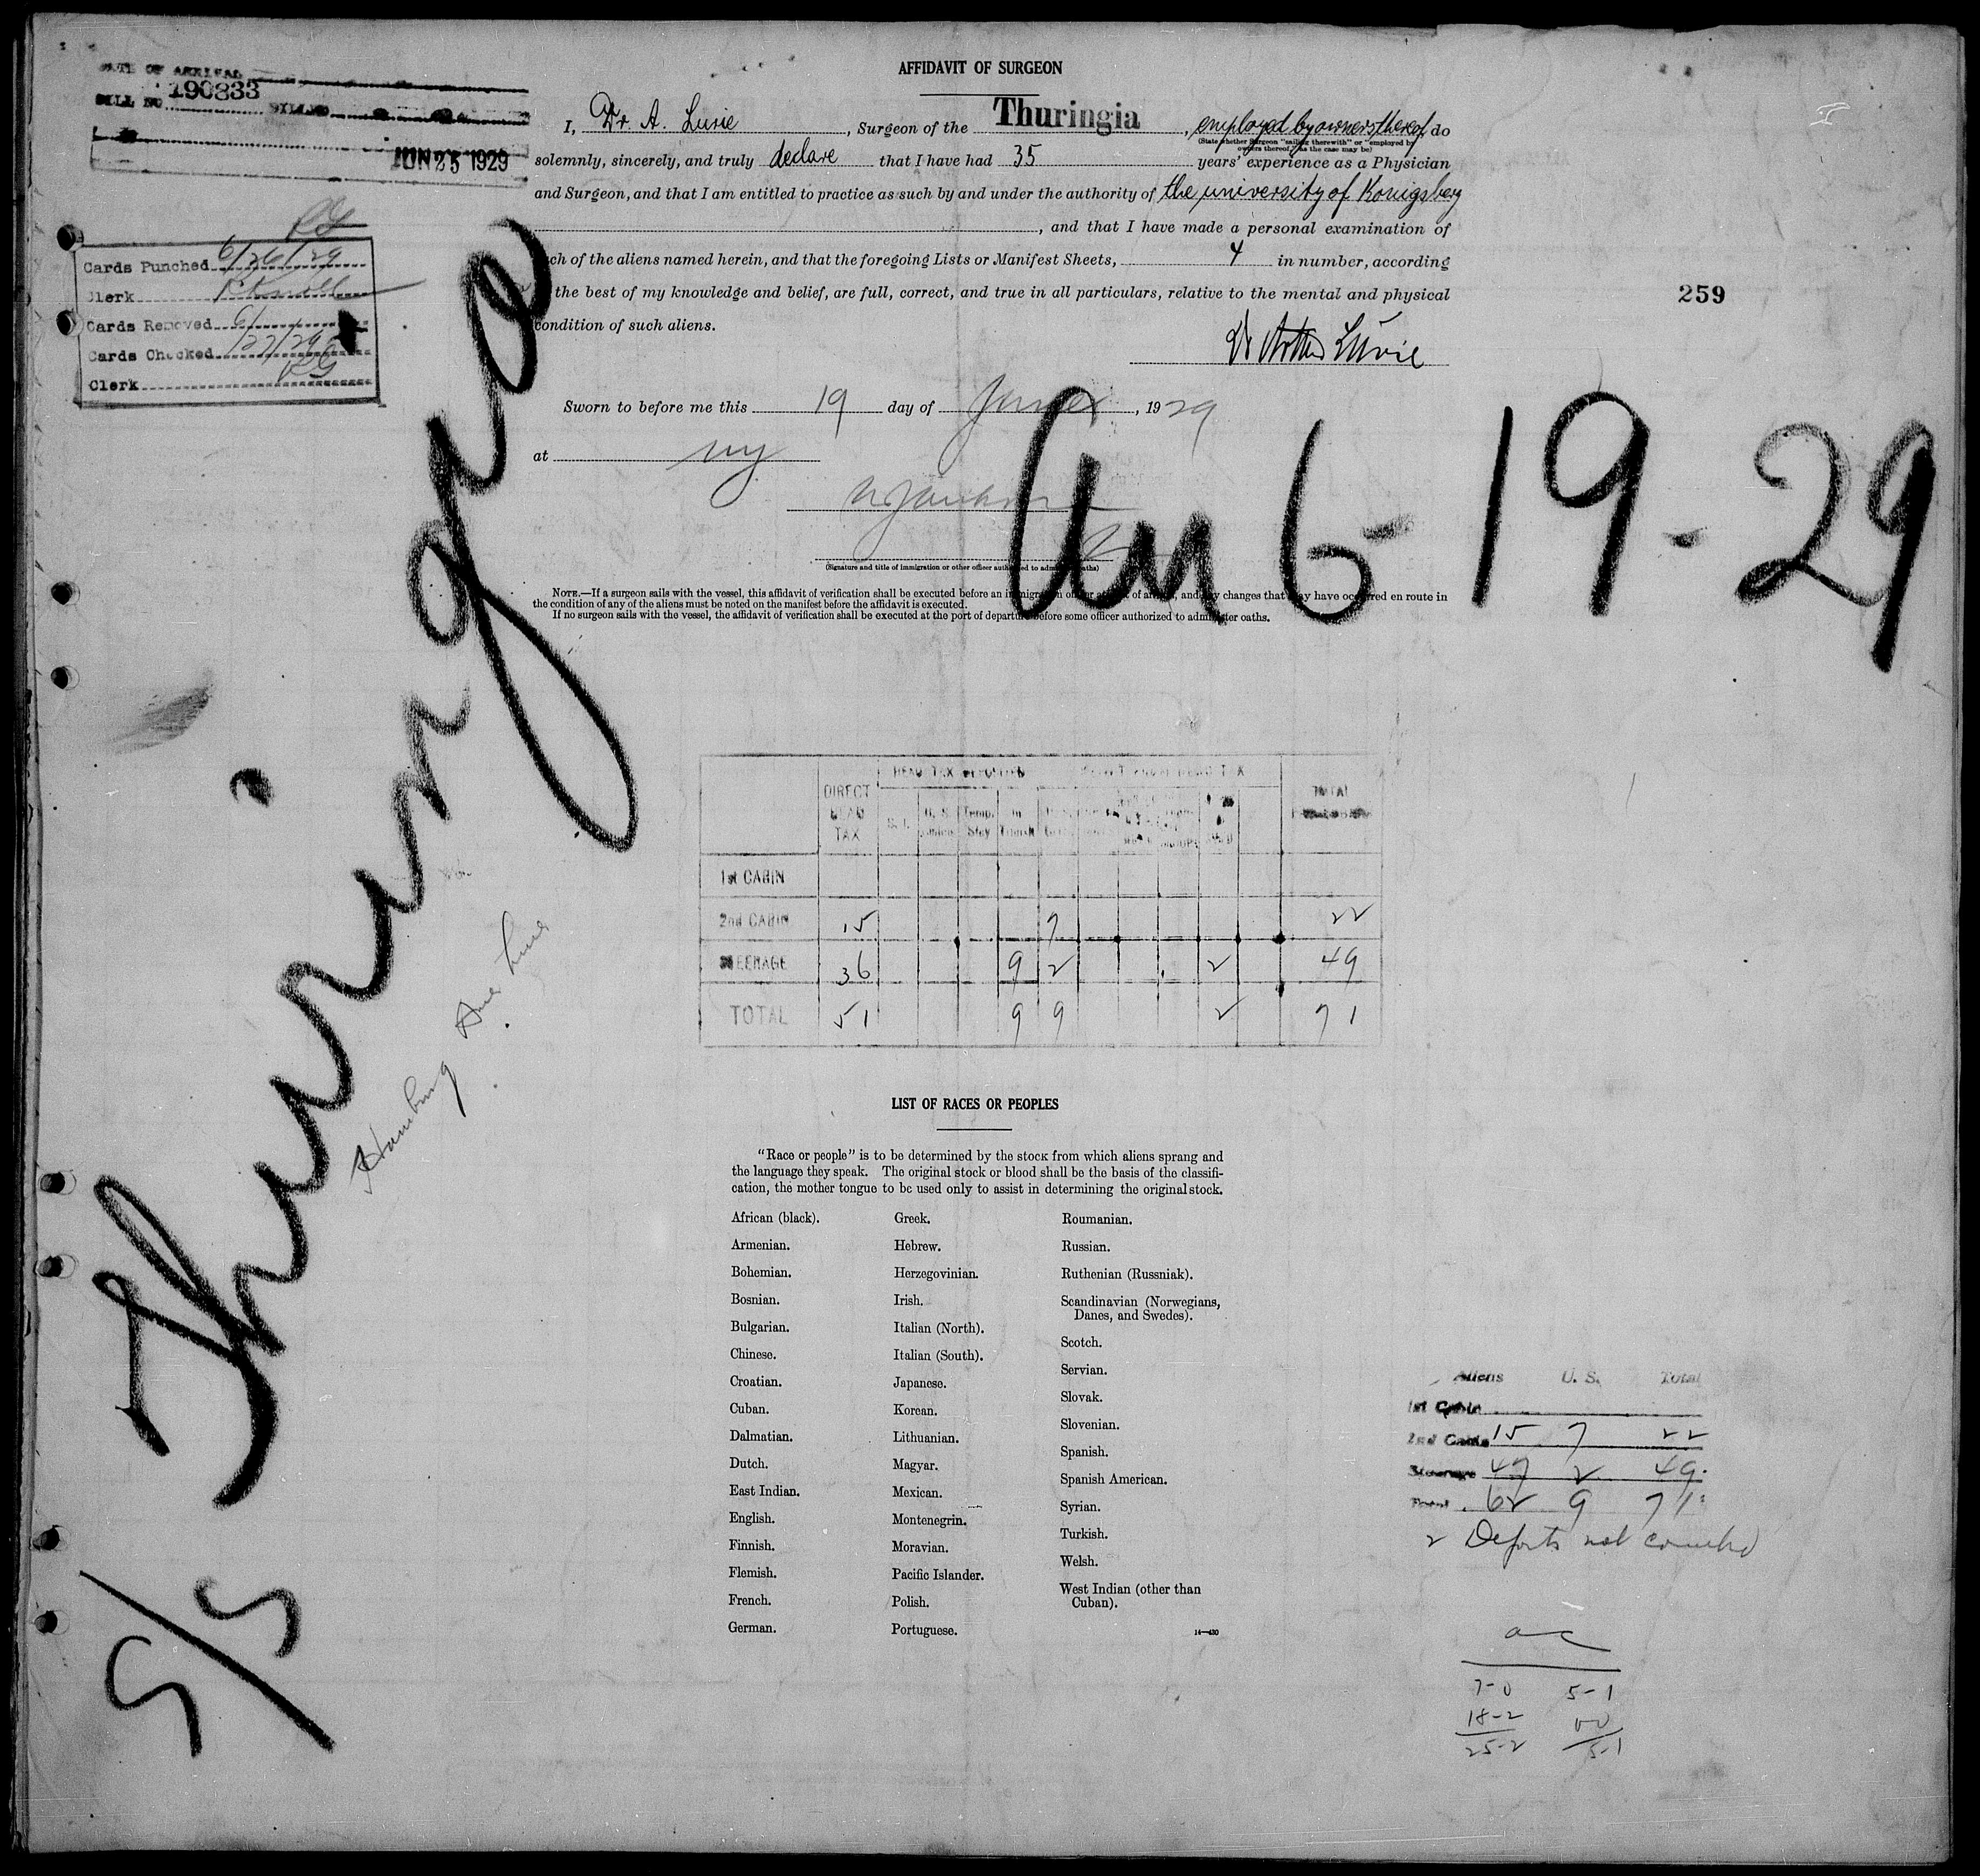 DATE OF ARRIVAL
BILL NO. 190833
JUN 25 1929
Cards Punched 6/26/29
Clerk
Cards Removed 6/
Cards Checked /27/29
Clerk
AFFIDAVIT OF SURGEON
I, Dr. A. Lurie, Surgeon of the Thuringia, employed by owners thereof do
(State whether Surgeon "sailing therewith" or "employed by
owners thereof," as the case may be)
solemnly, sincerely, and truly declare that I have had 35 years' experience as a Physician
and Surgeon, and that I am entitled to practice as such by and under the authority of the university of Konigsberg
, and that I have made a personal examination of
each of the aliens named herein, and that the foregoing Lists or Manifest Sheets, 4 in number, according
the best of my knowledge and belief, are full, correct, and true in all particulars, relative to the mental and physical
condition of such aliens.
259
Dr Arthur Lurie
Sworn to before me this 19 day of June, 1929
at NY
(Signature and title of immigration or other officer authorized to administer oaths)
Arr 6-19-29
NOTE.—If a surgeon sails with the vessel, this affidavit of verification shall be executed before an immigration officer at port of arrival, and any changes that may have occurred en route in
the condition of any of the aliens must be noted on the manifest before the affidavit is executed.
If no surgeon sails with the vessel, the affidavit of verification shall be executed at the port of departure before some officer authorized to administer oaths.
S/S Thuringia
Hamburg Am Line
DIRECT HEAD TAX
HEAD TAX
U. S. Temp. Stay In Transit
TOTAL
1st CABIN
2nd CABIN 15 7 22
STEERAGE 36 9 2 2 49
TOTAL 51 9 9 2 71
LIST OF RACES OR PEOPLES
"Race or people" is to be determined by the stock from which aliens sprang and
the language they speak. The original stock or blood shall be the basis of the classifi-
cation, the mother tongue to be used only to assist in determining the original stock.
African (black). Greek. Roumanian.
Armenian. Hebrew. Russian.
Bohemian. Herzegovinian. Ruthenian (Russniak).
Bosnian. Irish. Scandinavian (Norwegians,
Danes, and Swedes).
Bulgarian. Italian (North). Scotch.
Chinese. Italian (South). Servian.
Croatian. Japanese. Slovak.
Cuban. Korean. Slovenian.
Dalmatian. Lithuanian. Spanish.
Dutch. Magyar. Spanish American.
East Indian. Mexican. Syrian.
English. Montenegrin. Turkish.
Finnish. Moravian. Welsh.
Flemish. Pacific Islander. West Indian (other than
Cuban).
French. Polish.
German. Portuguese.
14—430
Aliens U. S. Total
1st Cabin
2nd Cabin 15 7 22
Steerage 47 2 49
Total 62 9 71
2 Deports not counted
a c
7-0 5-1
18-2 00
25-2 5-1